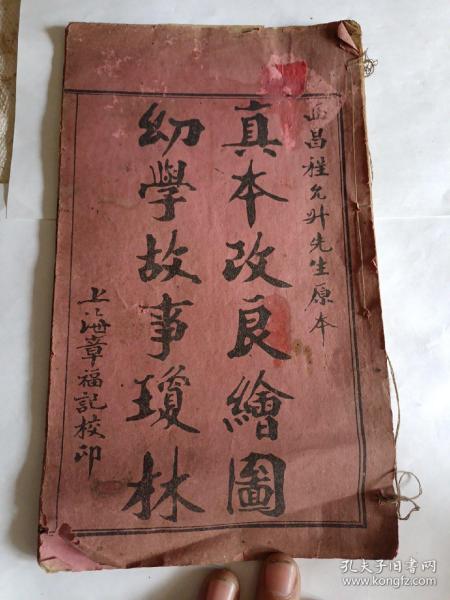 西昌程允升先生原本
真本改良繪圖
幼學故事瓊林
上海章福記校印
孔夫子旧书网
www.kongfz.com